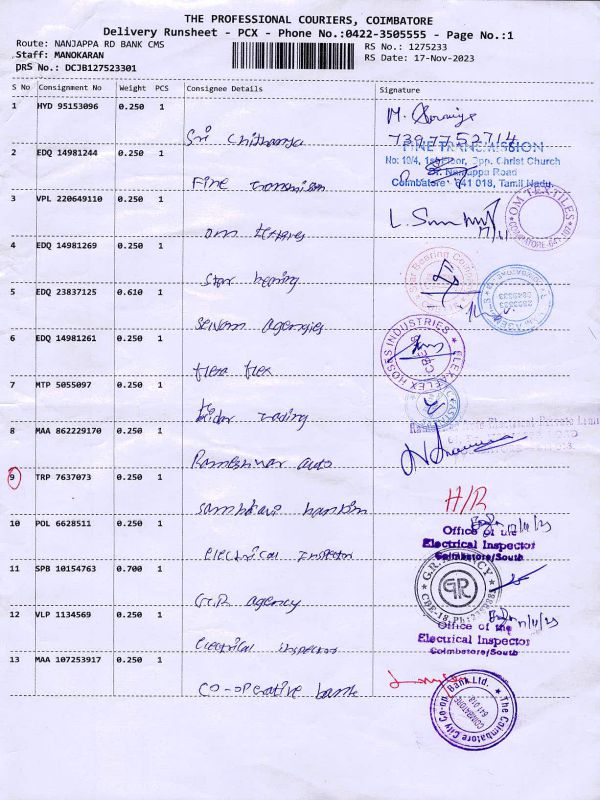 THE PROFESSIONAL COURIERS, COIMBATORE
Delivery Runsheet - PCX - Phone No.:0422-3505555 - Page No.:1
Route: NANJAPPA RD BANK CMS
RS No.: 1275233
Staff: MANOKARAN
RS Date: 17-Nov-2023
DRS No.: DCJB127523301
S No Consignment No Weight PCS Consignee Details Signature
1 HYD 95153096 0.250 1
Sri
7397752714
2 EDQ 14981244 0.250 1
FINE TRANSMISSION
No: 10/4, 1st Floor, Opp. Christ Church
Dr. Nanjappa Road
Coimbatore - 641 018, Tamil Nadu.
Fine transmission
3 VPL 220649110 0.250 1
OM TEXTILES
COIMBATORE-641
om
4 EDQ 14981269 0.250 1
Star Bearing
Star bearing
5 EDQ 23837125 0.610 1
agencies
6 EDQ 14981261 0.250 1
ELEXAFLEX HOSES INDUSTRIES
CBE
flexa flex
7 MTP 5055097 0.250 1
trading
8 MAA 862229170 0.250 1
Electrical Private
Rameshwar auto
9 TRP 7637073 0.250 1
H/R
10 POL 6628511 0.250 1
17/11/23
Office of the
Electrical Inspector
Coimbatore/South
electrical inspector
11 SPB 10154763 0.700 1
G.R. AGENCY
GR
G.R agency
12 VLP 1134569 0.250 1
17/11/23
Office of the
Electrical Inspector
Coimbatore/South
electrical inspector
13 MAA 107253917 0.250 1
The Coimbatore City Co-op. Bank Ltd.
COIMBATORE
641 018
co-operative bank